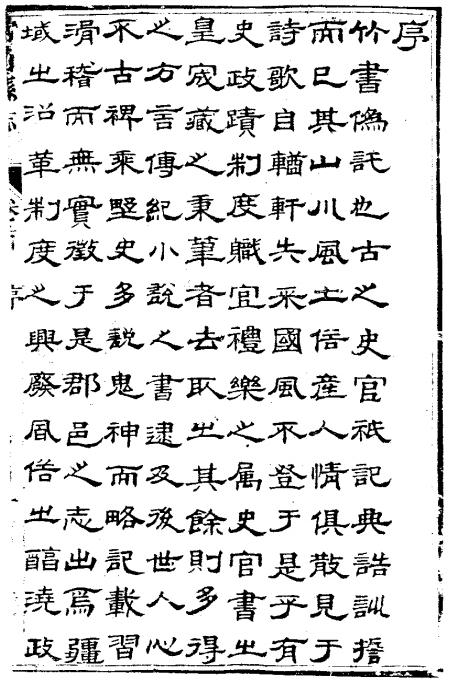 序
竹書僞託也古之史官祇記典誥訓誓
而已其山川風土俗產人情俱散見于
詩歌自輶軒失采國風不登于是乎有
史政蹟制度職宜禮樂之属史官書之
皇宬藏之秉筆者去取之其餘則多得
之方言傳紀小說之書逮及後世人心
不古稗乘野史多說鬼神而略記載習
滑稽而無實徵于是郡邑之志出焉疆
域之沿革制度之興廢風俗之醕澆政